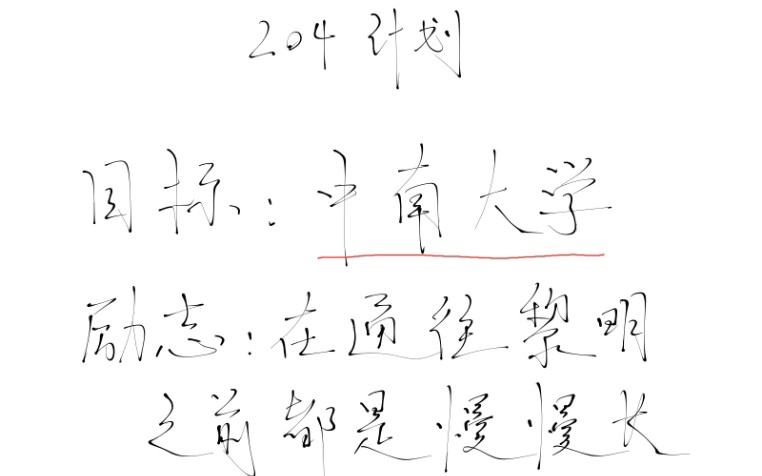 204 计划
目标：中南大学
励志：在通往黎明
之前都是慢慢长